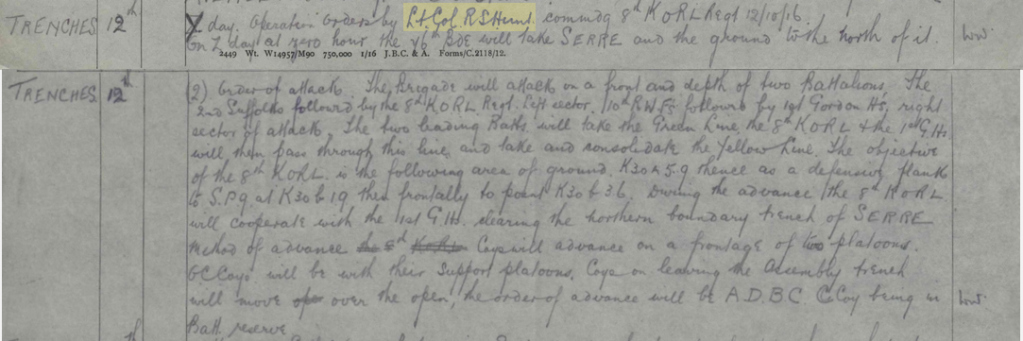 TRENCHES 12th Y day. Operation Orders by Lt Col R S Hunt. commdg 8th KORL Regt 12/10/16.
On Z day at zero hour the 76th Bde will take SERRE and the ground to the north of it.
2449 Wt. W14957/M90 750,000 1/16 J.B.C. & A. Forms/C.2118/12.
TRENCHES 12th (2) Order of attack. The Brigade will attack on a front and depth of two Battalions. The
2nd Suffolks followed by the 8th KORL Regt. left sector, 10th R.W.F. followed by 1st Gordon Hs, right
sector of attack. The two leading Batts. will take the Green Line, the 8th KORL & the 1st G.Hs
will then pass through this line and take and consolidate the Yellow Line. The objective
of the 8th KORL. is the following area of ground. K30 a 5.9 thence as a defensive flank
to S.P.9. at K30 b 19 then frontally to point K30 b 3.6. During the advance the 8th KORL
will cooperate with the 1st G.Hs. clearing the northern boundary trench of SERRE
Method of advance 8th KORL Coys will advance on a frontage of two platoons.
OC Coys will be with their support platoons. Coys on leaving the Assembly trench
will move over the open, the order of advance will be A.D.B.C C Coy being in
Batt. reserve